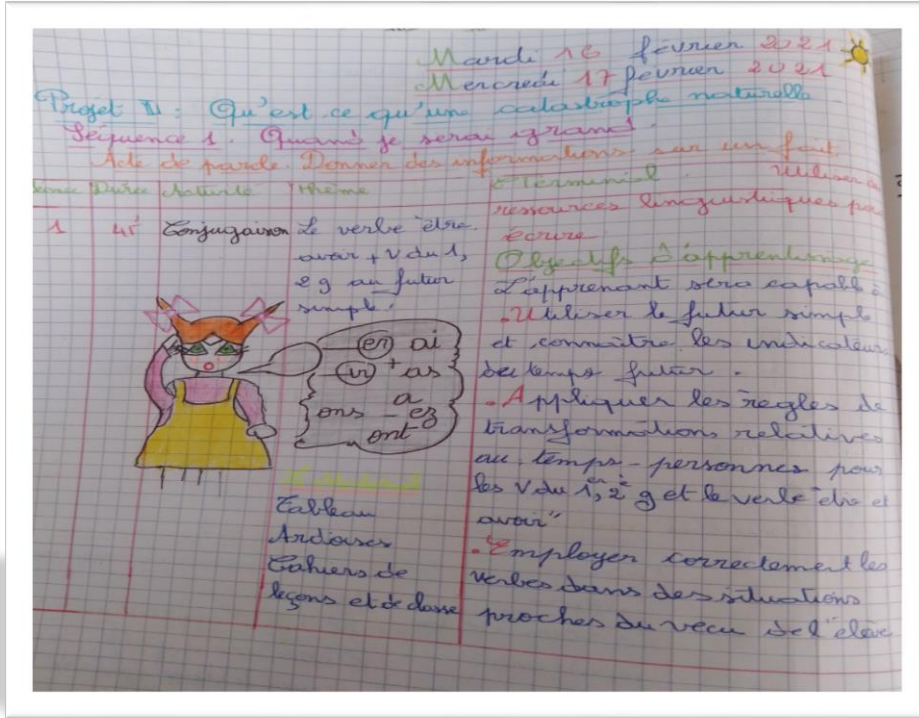 Mardi 16 février 2021
Mercredi 17 février 2021
Projet II : Qu'est ce qu'une catastrophe naturelle
Séquence 1. Quand je serai grand.
Acte de parole. Donner des informations sur un fait
Durée Activité Thème
O Terminal. Utiliser
ressources linguistiques
écrire
1 45' Conjugaison Le verbe être
avoir + V du 1,
2 g au futur
simple.
er ai
ir + as
a
ons ez
ont
Tableau
Ardoises
Cahiers de
leçons et de classe
Objectifs d'apprentissage
L'apprenant sera capable
. Utiliser le futur simple
et connaître les indicateur
de temps futur.
. Appliquer les règles de
transformations relatives
au temps - personnes pour
les V du 1er, 2e g et le verbe "être et
avoir"
. Employer correctement les
verbes dans des situations
proches du vécu de l'élève